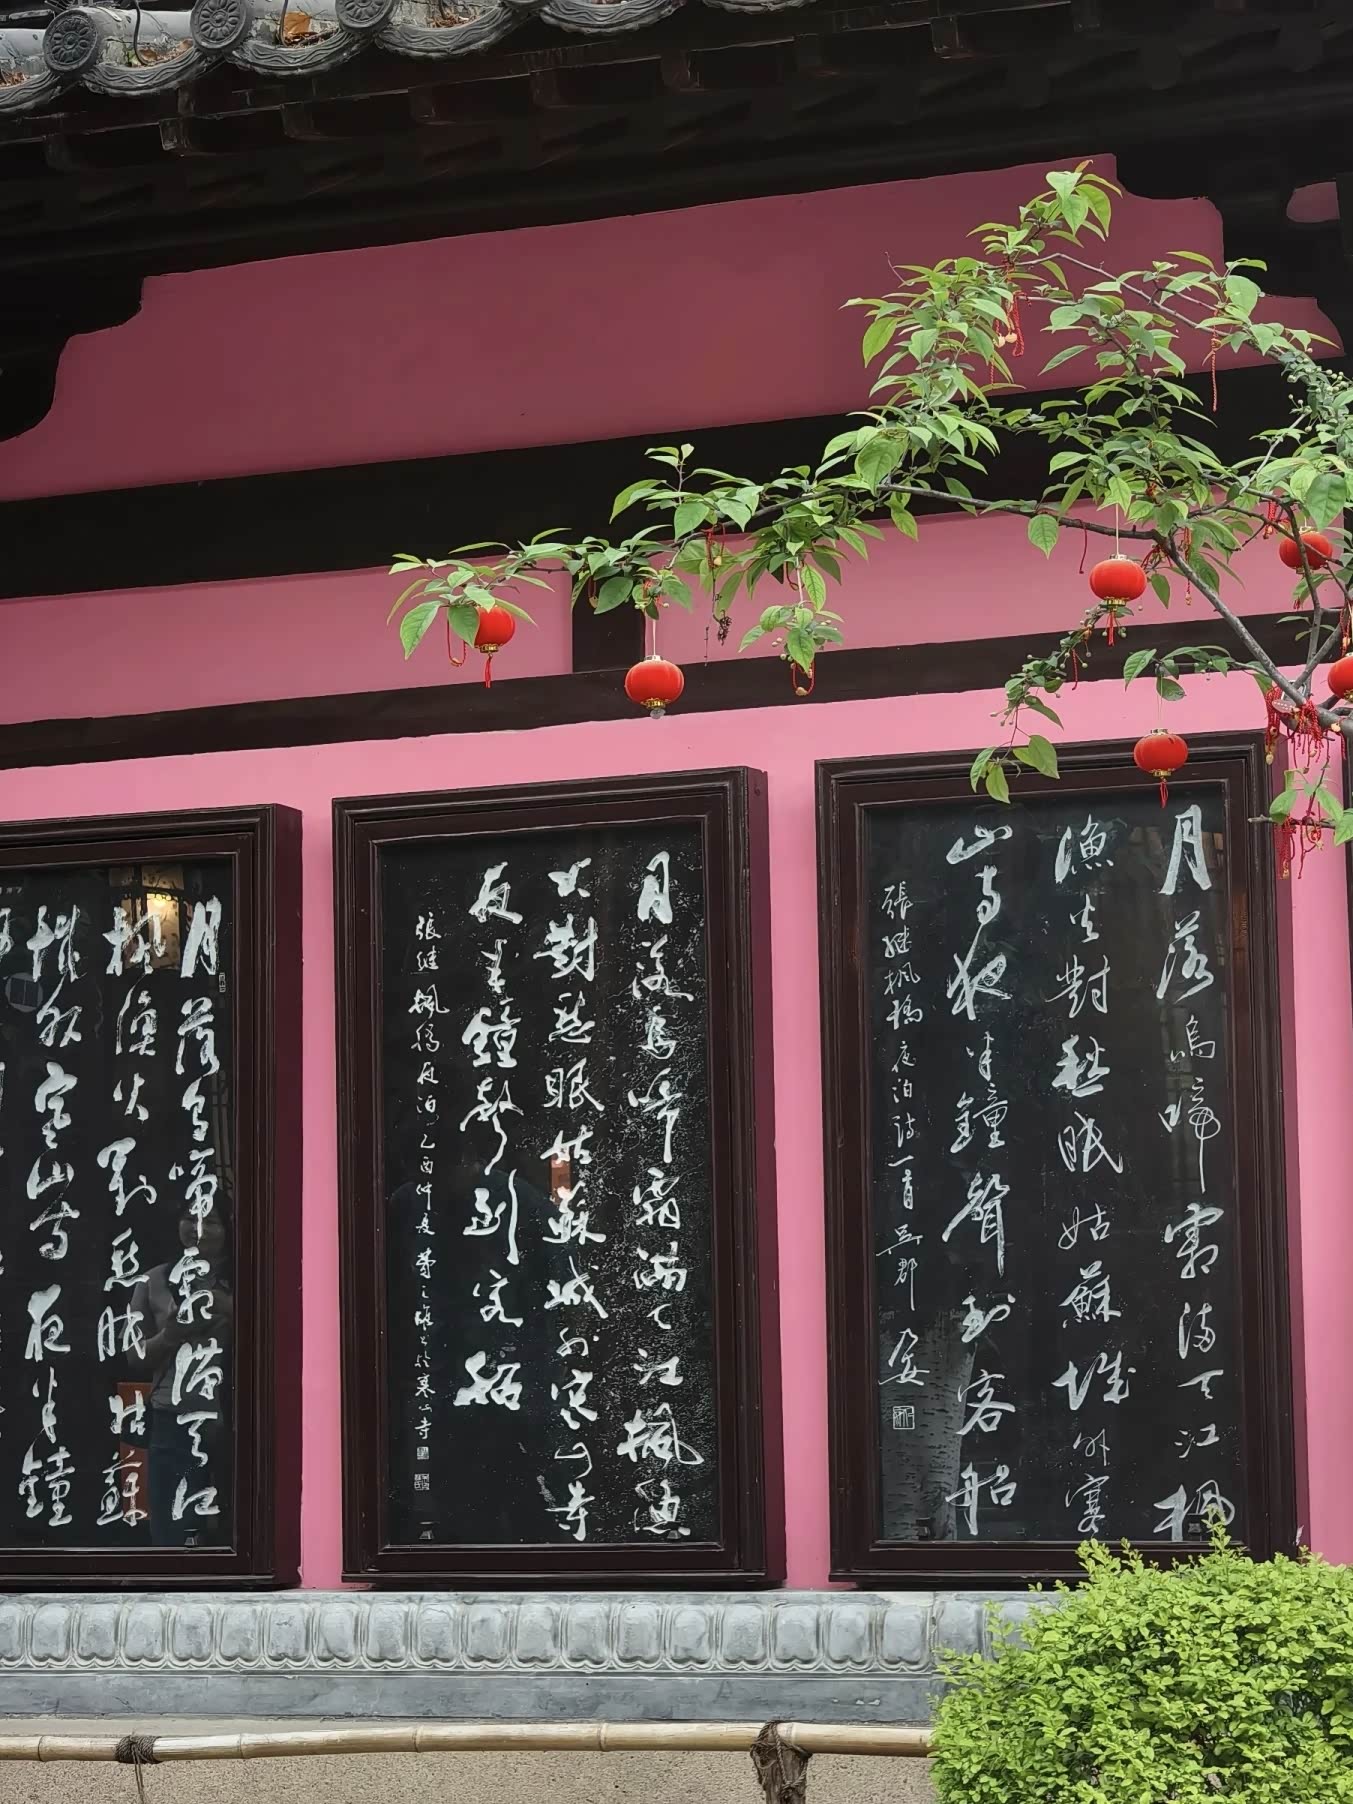 月落嗚啼霜满天江楓
漁火對愁眠姑蘇城外寒
山寺夜半鐘聲到客船
張繼楓橋夜泊詩一首吳郡
月落烏啼霜滿天江楓漁
火對愁眠姑蘇城外寒山寺
夜半鐘聲到客船
張継楓橋夜泊乙酉仲夏費之雄书於寒山寺
月落烏啼霜滿天江
楓漁火對愁眠姑蘇
城外寒山寺夜半鐘